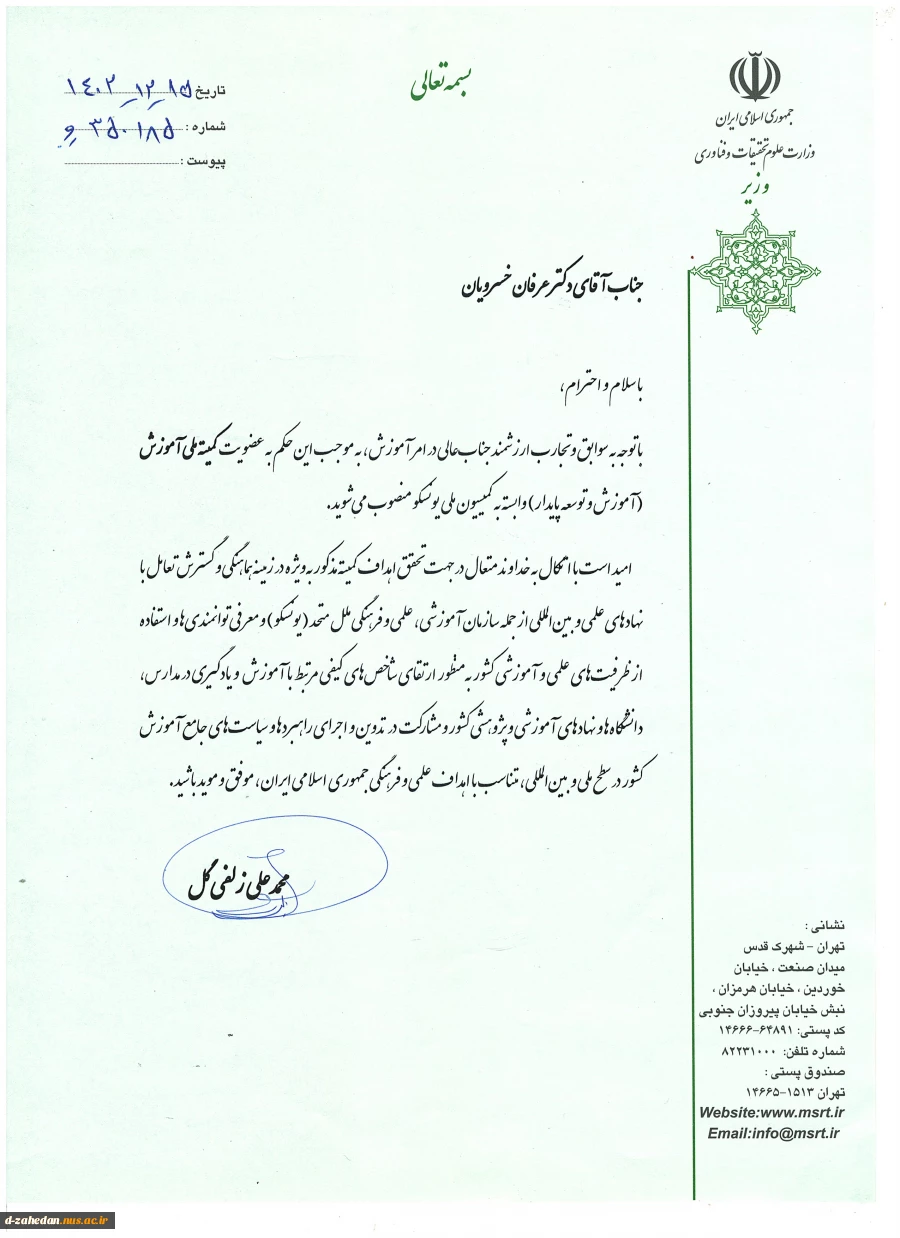 بسمه تعالی
جمهوری اسلامی ایران
وزارت علوم تحقیقات و فناوری
وزیر
تاریخ ۱۴۰۲-۱۲-۱۵
شماره : ۳۵۰۱۸۵ و
پیوست :
جناب آقای دکتر عرفان خسرویان
با سلام و احترام،
با توجه به سوابق و تجارب ارزشمند جناب‌عالی در امر آموزش، به موجب این حکم به عضویت کمیته ملی آموزش
(آموزش و توسعه پایدار) وابسته به کمیسیون ملی یونسکو منصوب می‌شوید.
امید است با اتکال به خداوند متعال در جهت تحقق اهداف کمیته مذکور به ویژه در زمینه هماهنگی و گسترش تعامل با
نهادهای علمی و بین‌المللی از جمله سازمان آموزشی، علمی و فرهنگی ملل متحد (یونسکو) و معرفی توانمندی‌ها و استفاده
از ظرفیت‌های علمی و آموزشی کشور به منظور ارتقای شاخص‌های کیفی مرتبط با آموزش و یادگیری در مدارس،
دانشگاه‌ها و نهادهای آموزشی و پژوهشی کشور و مشارکت در تدوین و اجرای راهبردها و سیاست‌های جامع آموزش
کشور در سطح ملی و بین‌المللی، متناسب با اهداف علمی و فرهنگی جمهوری اسلامی ایران، موفق و موید باشید.
محمدعلی زلفی گل
نشانی :
تهران - شهرک قدس
میدان صنعت ، خیابان
خوردین ، خیابان هرمزان ،
نبش خیابان پیروزان جنوبی
کد پستی: ۶۴۸۹۱-۱۴۶۶۶
شماره تلفن: ۸۲۲۳۱۰۰۰
صندوق پستی :
تهران ۱۵۱۳-۱۴۶۶۵
Website:www.msrt.ir
Email:info@msrt.ir
d-zahedan.nus.ac.ir